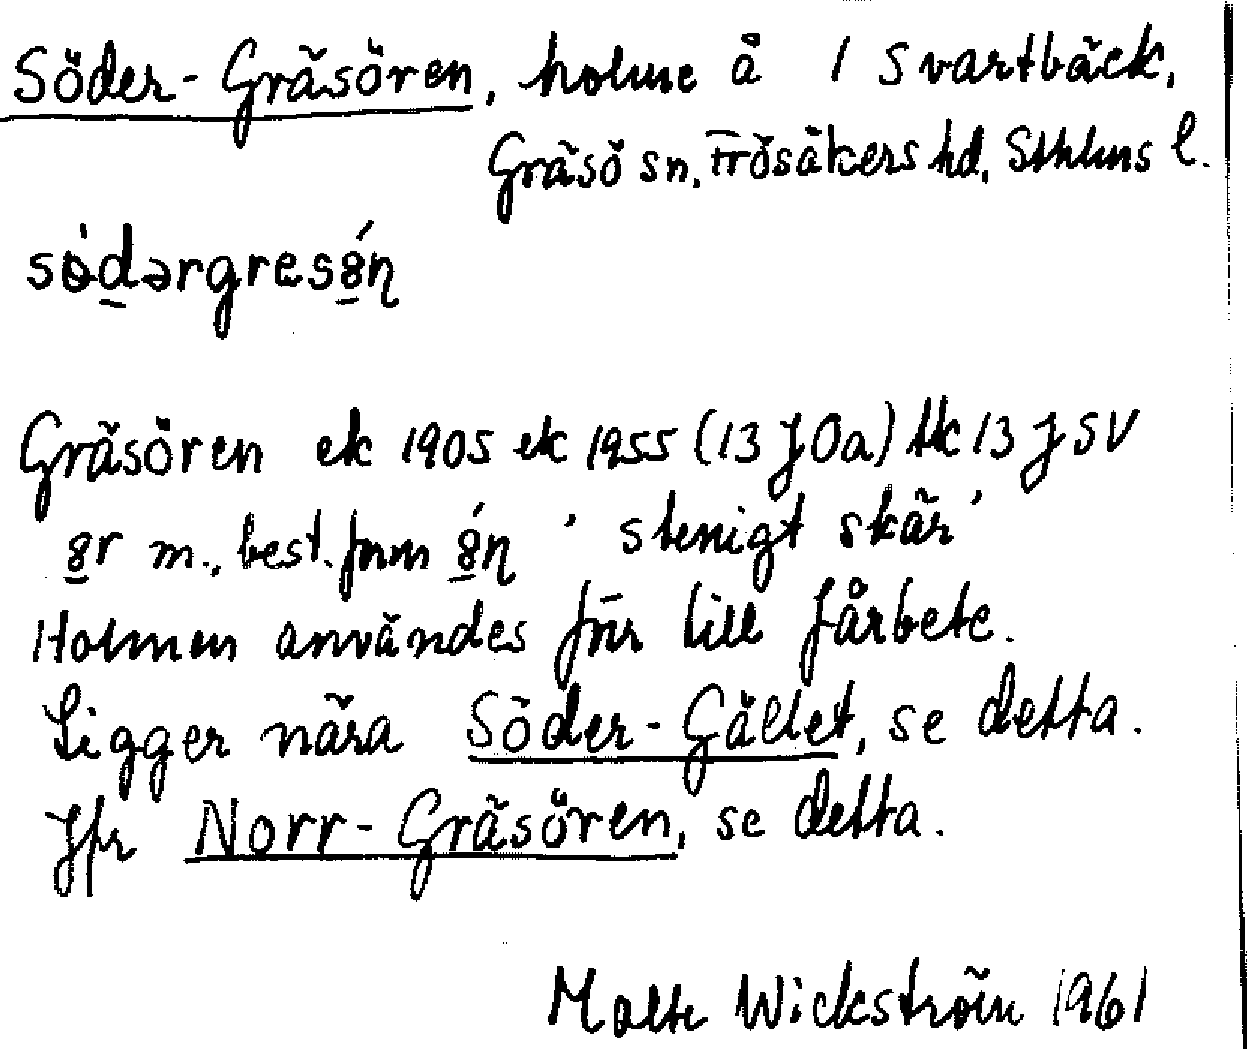 Söder-Gräsören, holme å 1 Svartbäck,
Gräsö sn, Frösåkers hd, Sthlms l.
sö̀dərgresǿɳ
Gräsören ek 1905 ek 1955 (13 J 0a) tk 13 J SV
ør m., best. form ǿɳ 'stenigt skär'
Holmen användes förr till fårbete.
Ligger nära Söder-Gället, se detta.
Jfr Norr-Gräsören, se detta.
Malte Wickström 1961